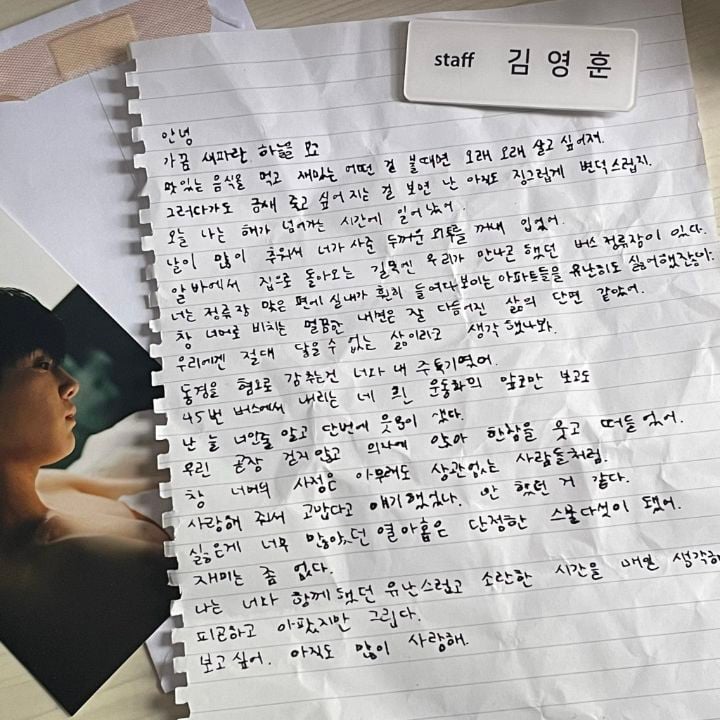 staff 김영훈
안녕
가끔 새파란 하늘 보고
맛있는 음식을 먹고 재밌는 어떤 걸 볼때면 오래 오래 살고 싶어져.
그러다가도 금새 죽고 싶어지는 걸 보면 난 아직도 징그럽게 변덕스럽지.
오늘 나는 해가 넘어가는 시간에 일어났어.
날이 많이 추워서 너가 사준 두꺼운 외투를 꺼내 입었어.
알바에서 집으로 돌아오는 길목엔 우리가 만나곤 했던 버스 정류장이 있다.
너는 정류장 맞은 편에 실내가 훤히 들여다보이는 아파트들을 유난히도 싫어했잖아.
창 너머로 비치는 멀끔한 내면은 잘 다듬어진 삶의 단면 같았어.
우리에겐 절대 닿을 수 없는 삶이라고 생각했나봐.
동경을 혐오로 감추는건 너와 내 주특기였어.
45번 버스에서 내리는 네 흰 운동화의 앞코만 보고도
난 늘 너인줄 알고 단번에 웃음이 샜다.
우린 곧장 걷지 않고 의자에 앉아 한참을 웃고 떠들었어.
창 너머의 사정은 아무래도 상관없는 사람들처럼.
사랑해 줘서 고맙다고 얘기했었나. 안 했던 거 같다.
싫은게 너무 많았던 열아홉은 단정한 스물다섯이 됐어.
재미는 좀 없다.
나는 너와 함께했던 유난스럽고 소란한 시간을 매일 생각해
피곤하고 아팠지만 그립다.
보고싶어. 아직도 많이 사랑해.